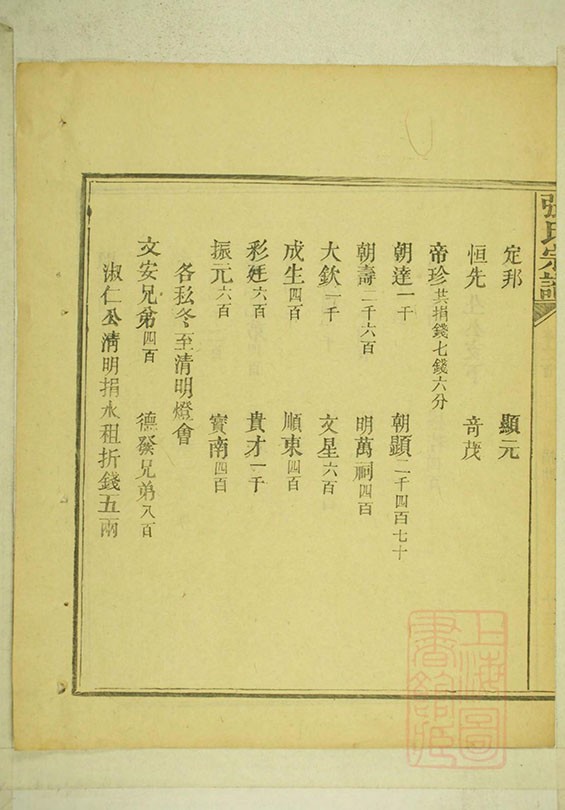 張氏宗譜
定邦　顯元
恒先　奇茂
帝珍共捐錢七錢六分
朝達一千　朝顯二千四百七十
朝壽二千六百　明萬祠四百
大欽一千　文星六百
成生四百　順東四百
彩廷六百　貴才一千
振元六百　寳南四百
各私冬至清明燈會
文安兄弟四百　德發兄弟八百
淑仁公清明捐水租折錢五兩
上海圖書館藏